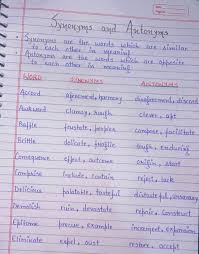 Synonyms and Antonyms
• Synonyms are the words which are similar
to each other in meaning.
• Antonyms are the words which are opposite
to each other in meaning.
WORD SYNONYMS ANTONYMS
Accord agreement, harmony disagreement, discord
Awkward clumsy, rough clever, apt
Baffle frustrate, perplex compose, facilitate
Brittle delicate, fragile tough, enduring
Consequence effect, outcome origin, start
Comprise include, contain reject, lack
Delicious palatable, tasteful distasteful, unsavoury
Demolish ruin, devastate repair, construct
Epitome precise, example increment, expansion
Eliminate expel, oust restore, accept